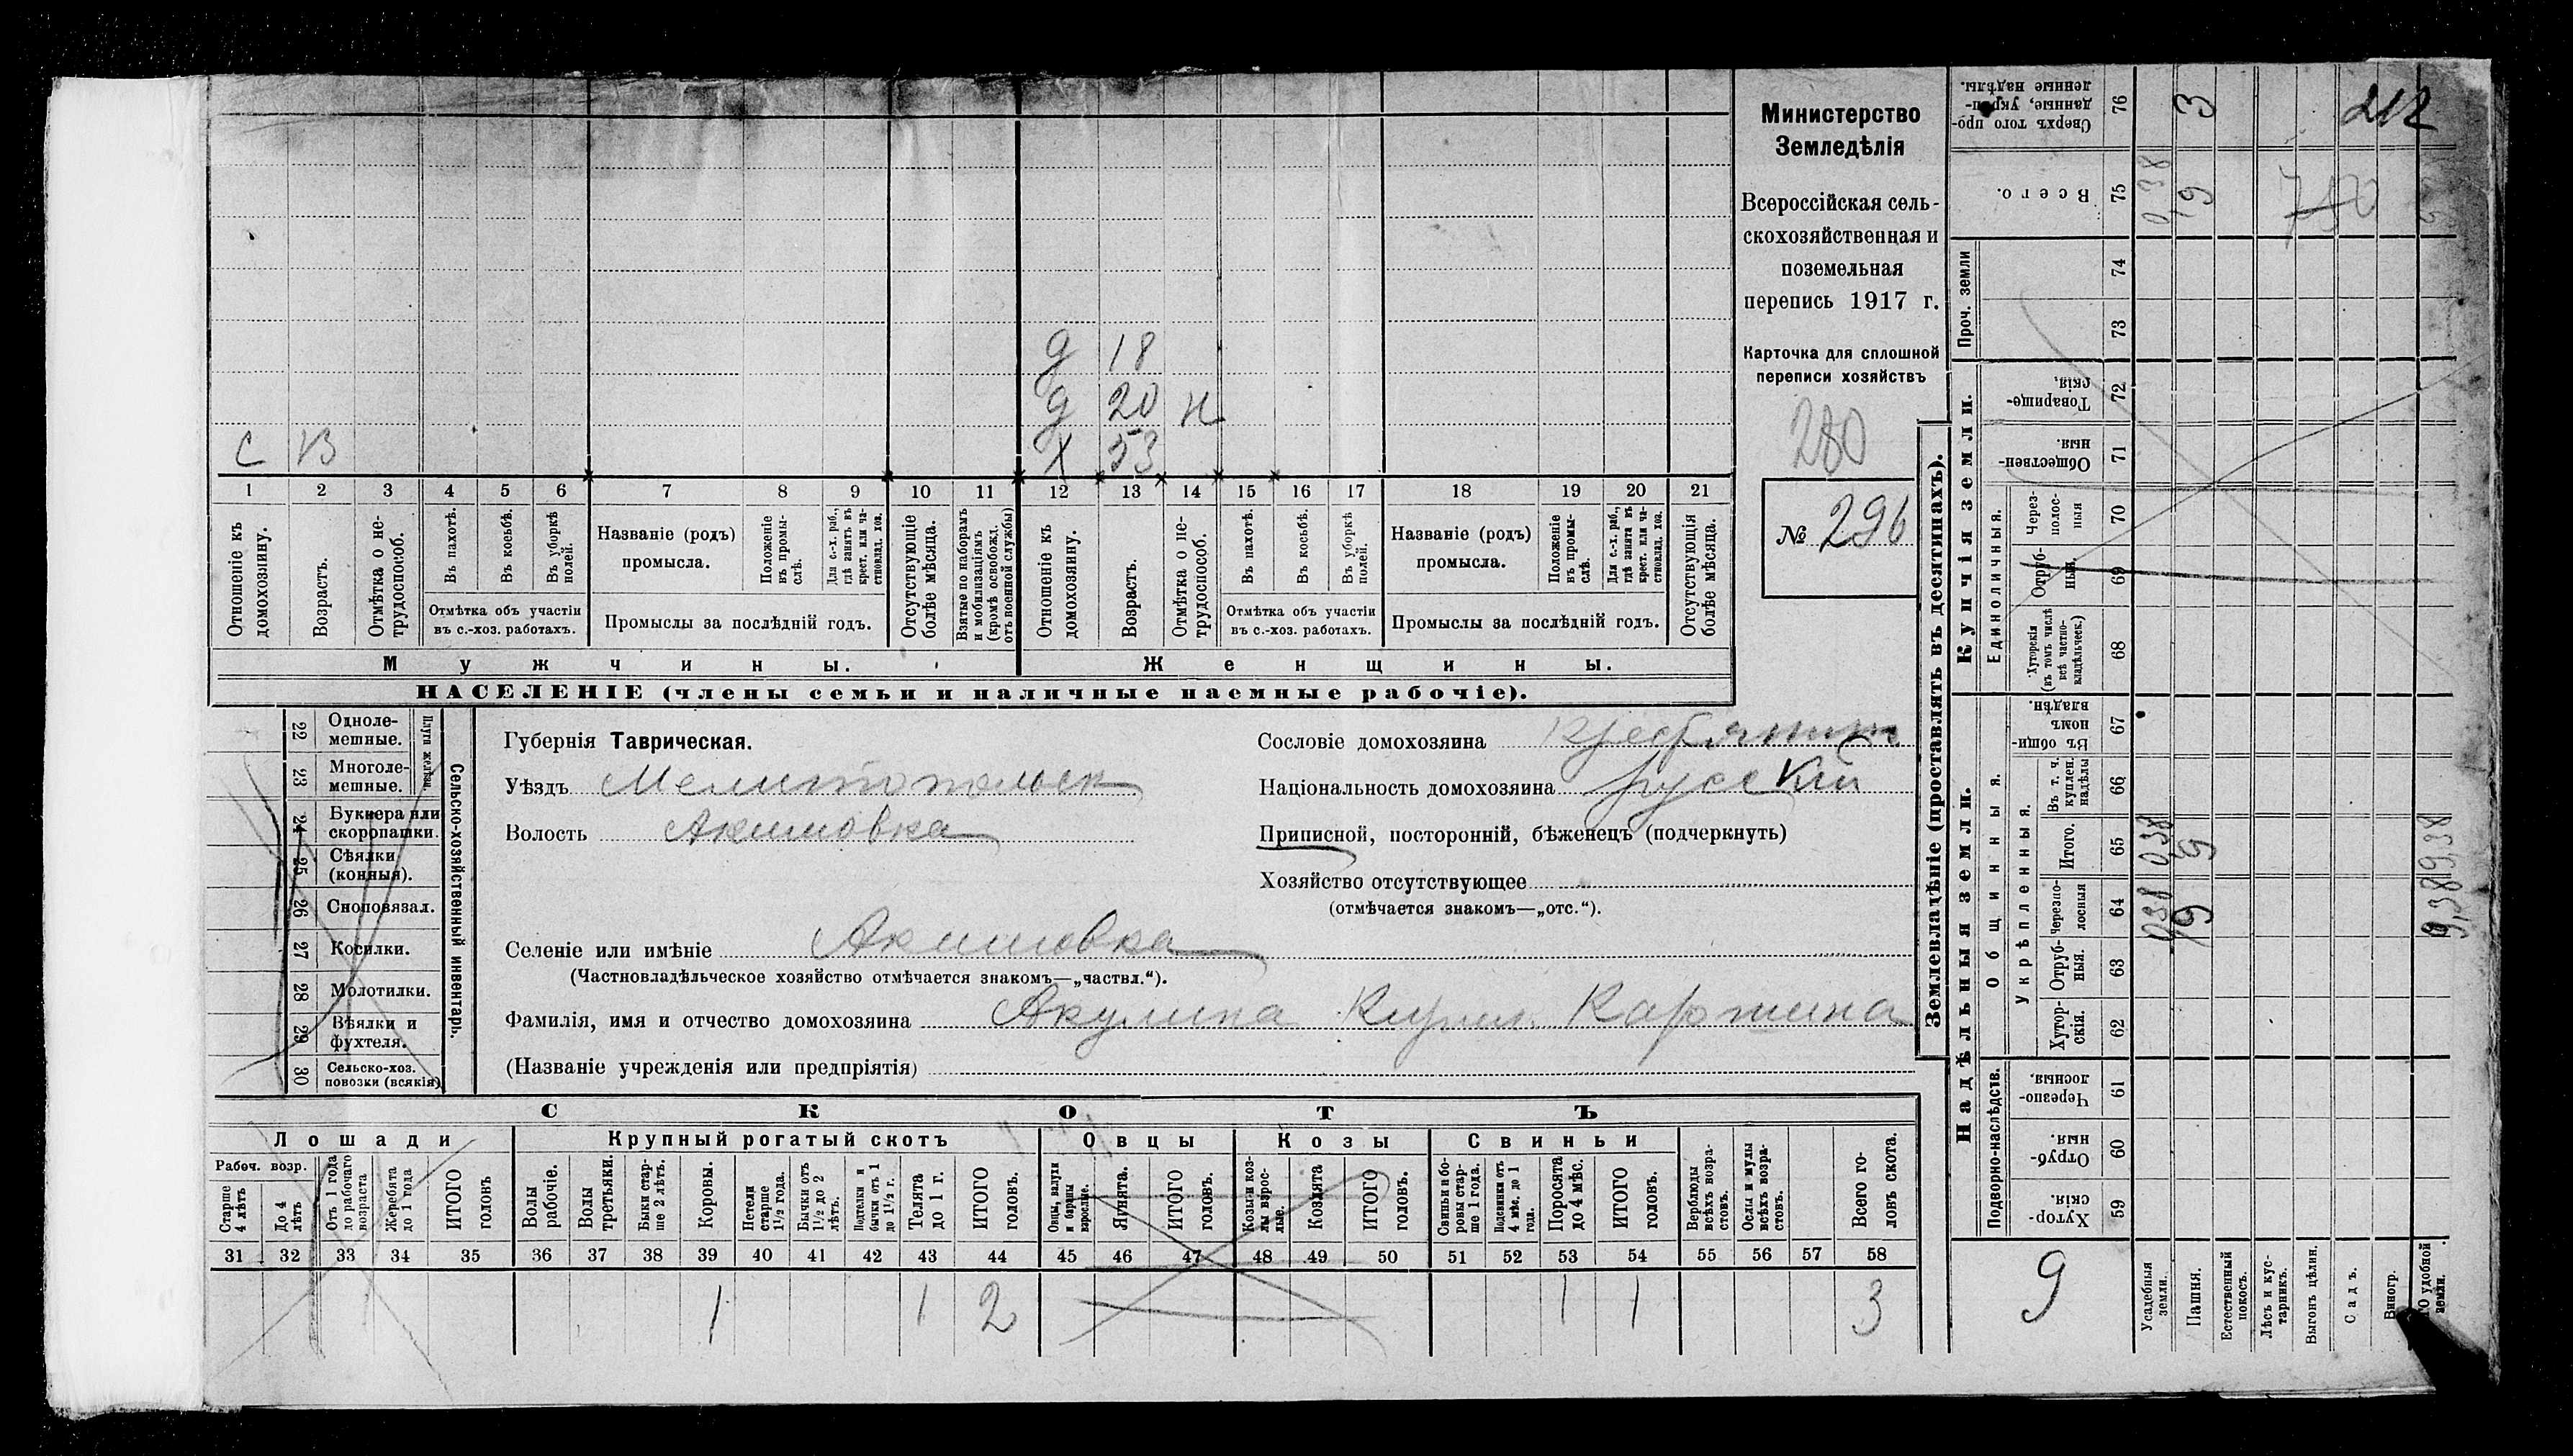 Министерство
Земледѣлія
Всероссійская сель-
скохозяйственная и
поземельная
перепись 1917 г.
Карточка для сплошной
переписи хозяйствъ
280
№ 296
д 18
д 20 н
С 13 Х 53
1 2 3 4 5 6 7 8 9 10 11 12 13 14 15 16 17 18 19 20 21
Отношеніе къ домохозяину.
Возрастъ.
Отмѣтка о не-трудоспособ.
Въ пахотѣ.
Въ косьбѣ.
Въ уборкѣ полей.
Отмѣтка объ участіи
въ с.-хоз. работахъ.
Названіе (родъ)
промысла.
Положеніе въ промы-слѣ.
Для с.-х. раб., гдѣ занятъ въ крест. или ча-стновлад. хоз.
Промыслы за послѣдній годъ.
Отсутствующіе болѣе мѣсяца.
Взятые по наборамъ и мобилизаціямъ (кромѣ освобожд. отъ военной службы)
Отношеніе къ домохозяину.
Возрастъ.
Отмѣтка о не-трудоспособ.
Въ пахотѣ.
Въ косьбѣ.
Въ уборкѣ полей.
Отмѣтка объ участіи
въ с.-хоз. работахъ.
Названіе (родъ)
промысла.
Положеніе въ промы-слѣ.
Для с.-х. раб., гдѣ занята въ крест. или ча-стновлад. хоз.
Промыслы за послѣдній годъ.
Отсутствующія болѣе мѣсяца.
Мужчины. Женщины.
НАСЕЛЕНІЕ (члены семьи и наличные наемные рабочіе).
Сельско-хозяйственный инвентарь.
Плуги желѣзн.
22 Одноле-мешные.
23 Многоле-мешные.
24 Буккера или скоропашки.
25 Сѣялки (конныя).
26 Сноповязал.
27 Косилки.
28 Молотилки.
29 Вѣялки и фухтеля.
30 Сельско-хоз. повозки (всякія)
Губернія Таврическая.
Уѣздъ Мелитопольск
Волость Акимовка
Сословіе домохозяина крестьянин
Національность домохозяина русскій
Приписной, посторонній, бѣженецъ (подчеркнуть)
Хозяйство отсутствующее
(отмѣчается знакомъ—„отс.“).
Селеніе или имѣніе Акимовка
(Частновладѣльческое хозяйство отмѣчается знакомъ—„частвл.“).
Фамилія, имя и отчество домохозяина Акулина Каршина
(Названіе учрежденія или предпріятія)
СКОТЪ
Лошади Крупный рогатый скотъ Овцы Козы Свиньи
Рабоч. возр.
Старше 4 лѣтъ
До 4 лѣтъ
Отъ 1 года до рабочаго возраста
Жеребята до 1 года
ИТОГО головъ
Волы рабочіе.
Волы третьяки.
Быки стар-ше 2 лѣтъ.
Коровы.
Петели старше 1½ года.
Бычки отъ 1½ до 2 лѣтъ.
Подтелки и бычки отъ 1 до 1½ г.
Телята до 1 г.
ИТОГО головъ.
Овцы, валухи и бараны взрослые.
Ягнята.
ИТОГО головъ.
Козы и коз-лы взрос-лые.
Козлята
ИТОГО головъ.
Свиньи и бо-ровы стар-ше 1 года.
Подсвинки отъ 4 мѣс. до 1 года.
Поросята до 4 мѣс.
ИТОГО головъ.
Верблюды всѣхъ возра-стовъ.
Ослы и мулы всѣхъ возра-стовъ.
Всего го-ловъ скота.
31 32 33 34 35 36 37 38 39 40 41 42 43 44 45 46 47 48 49 50 51 52 53 54 55 56 57 58
1 1 2 1 1 3
Землевладѣніе (проставлять въ десятинахъ).
Надѣльныя земли. Купчія земли.
Подворно-наслѣдств.
Общинныя.
Укрѣпленныя.
Единоличныя.
Проч. земли
Сверхъ того про-данные, укрѣп-ленные надѣлы. 76 3 212
Всего. 75 0,38 9
74
73
Товарище-скія. 72
Обществен-ныя. 71
Через-полос-ныя 70
Отруб-ныя 69
Хуторскія (въ томъ числѣ всѣ частно-владѣльческ.) 68
Въ общи-номъ владѣн. 67
Въ т. ч. куплен. надѣлы 66
Итого. 65 038 9
черезпо-лосныя 64 038 9 9,38 9,38
Отруб-ныя. 63
Хутор-скія. 62
Черезпо-лосныя. 61
Отруб-ныя. 60
Хутор-скія. 59
9
Усадебныя земли.
Пашня.
Естественный покосъ.
Лѣсъ и кус-тарникъ.
Выгонъ цѣлин.
Садъ.
Виногр.
удобной земли.